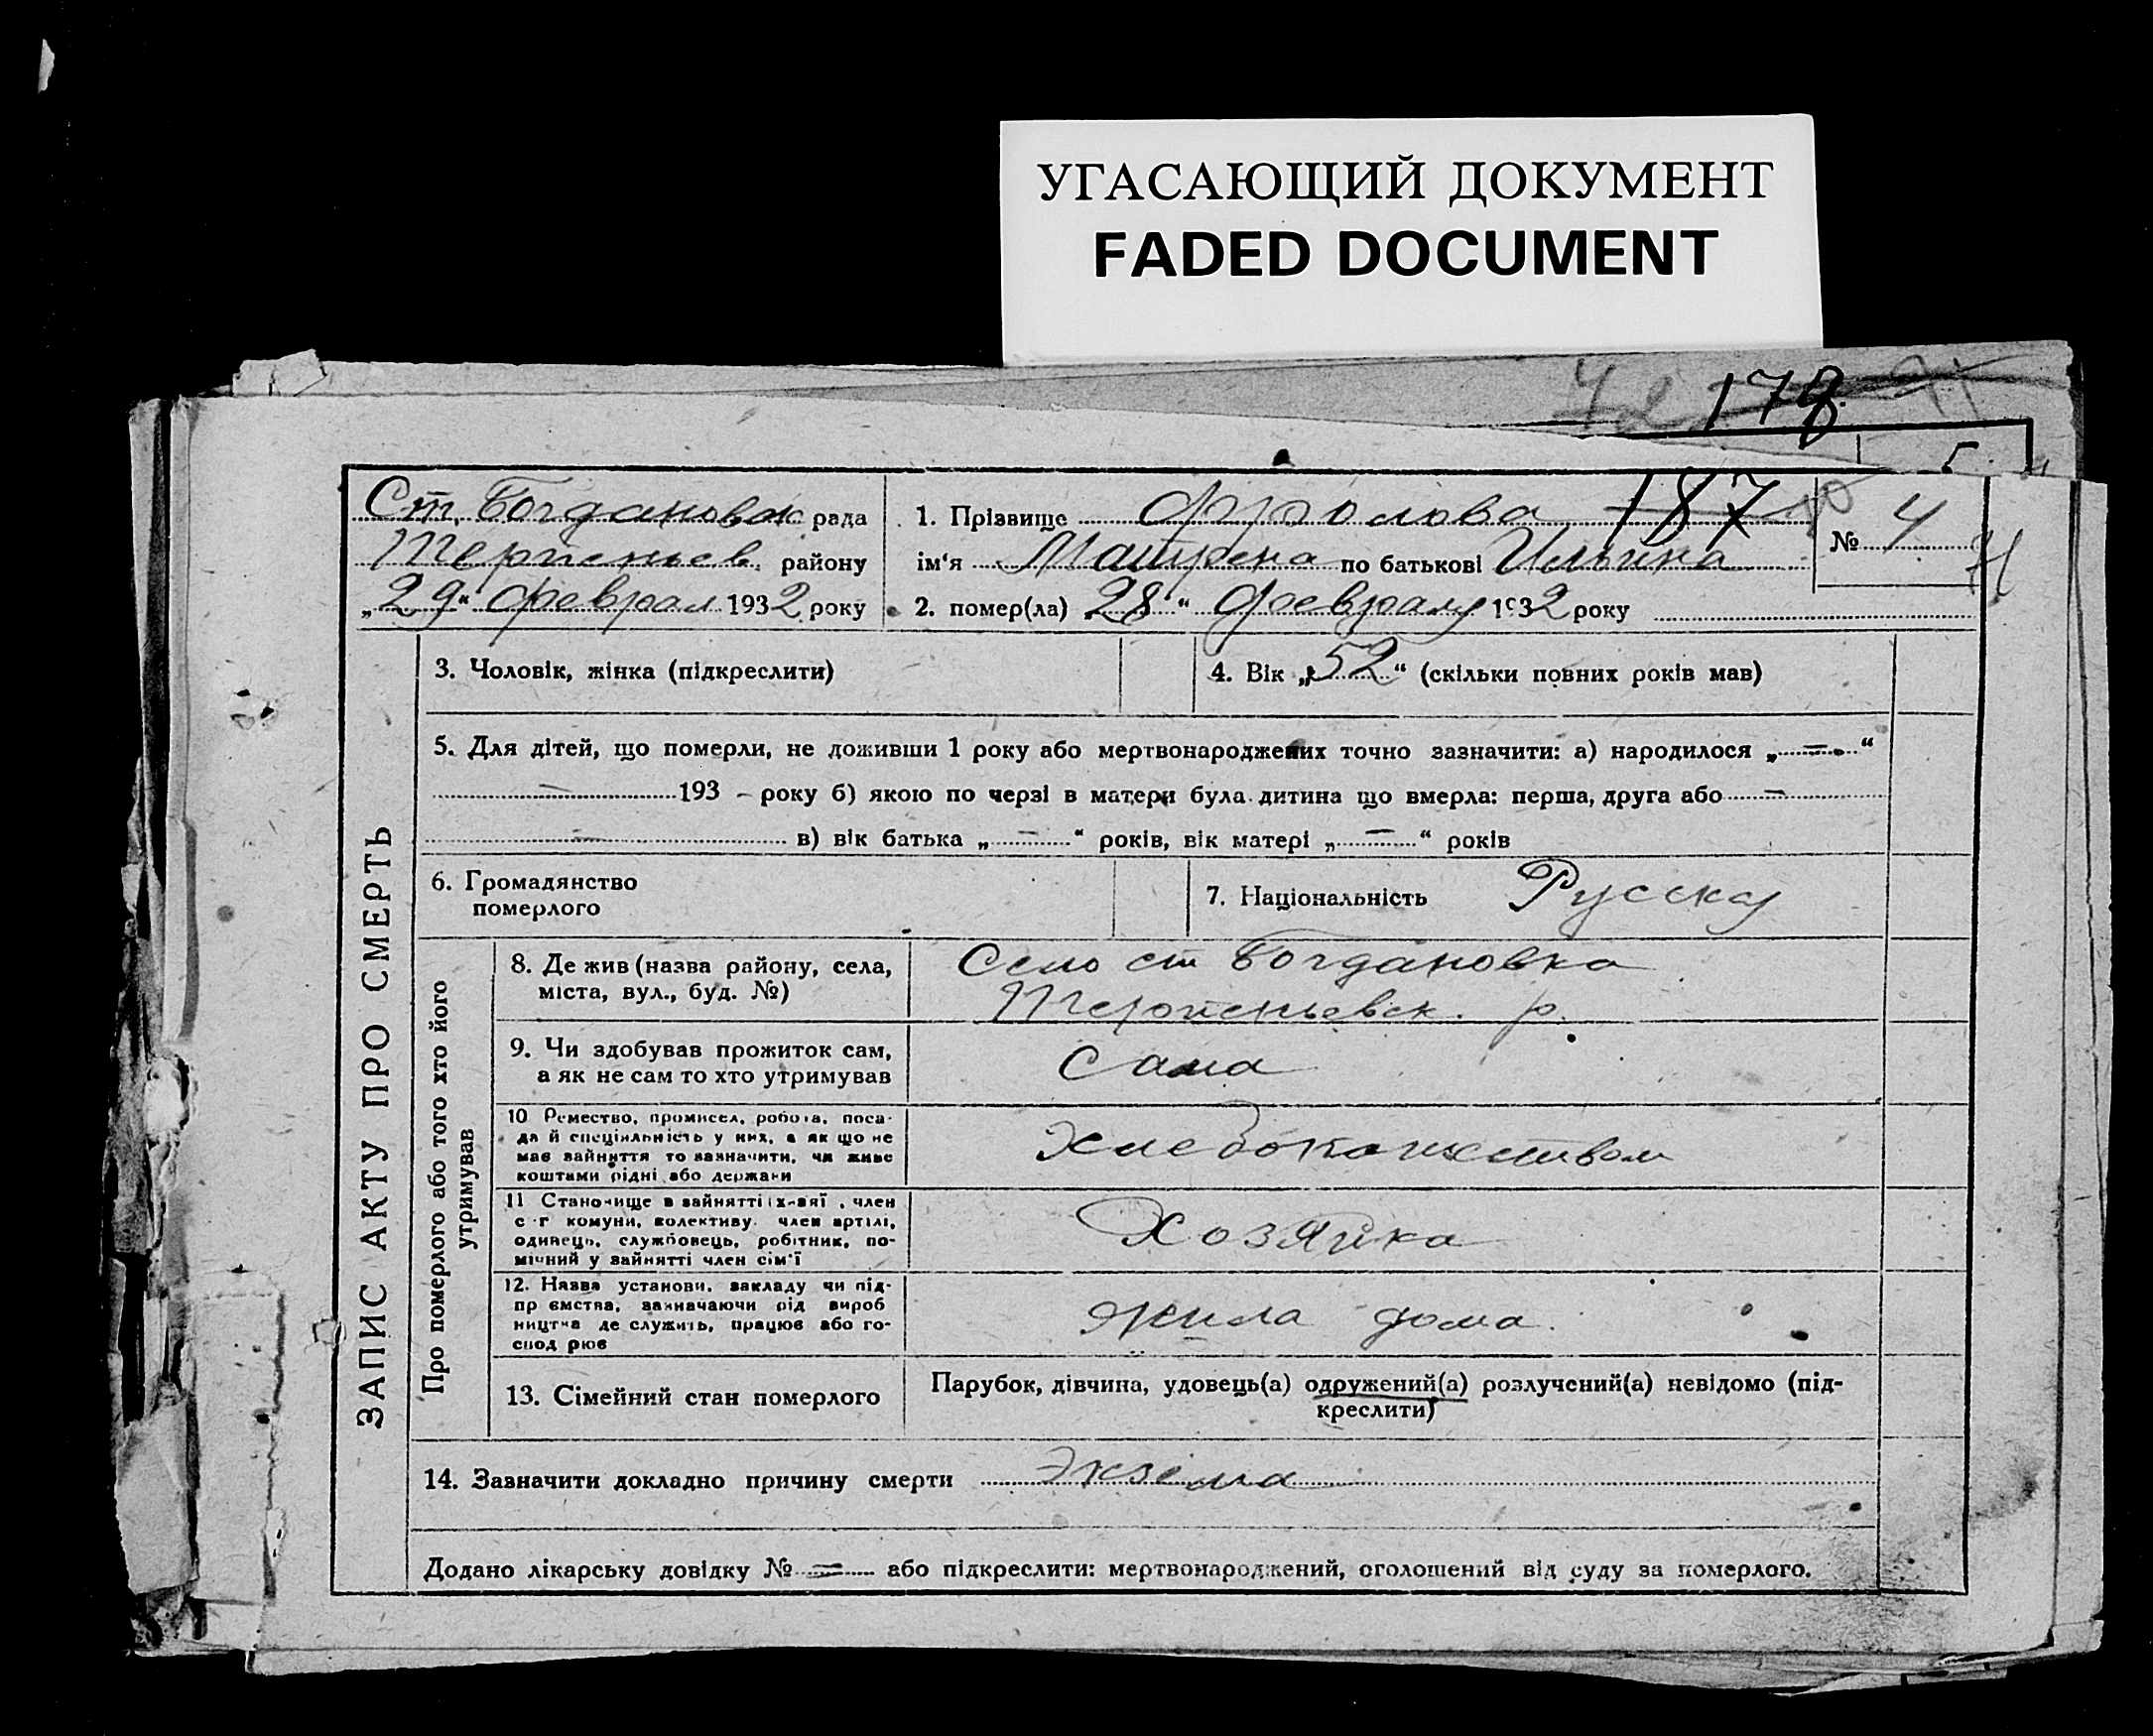 УГАСАЮЩИЙ ДОКУМЕНТ
FADED DOCUMENT
178
5
Ст. Богдановск рада
Терпеньев. району
„29“ феврал 1932 року
1. Прізвище Фролова 187
ім'я Матрена по батькові Ильина
2. помер(ла) 28 “ февраля 1932 року
№ 4
3. Чоловік, жінка (підкреслити)
4. Вік „52“ (скільки повних років мав)
5. Для дітей, що померли, не доживши 1 року або мертвонароджених точно зазначити: а) народилося „ — “
— 193 – року б) якою по черзі в матери була дитина що вмерла: перша, друга або —
— в) вік батька „ — “ років, вік матері „ — “ років
6. Громадянство
померлого
7. Національність Русская
ЗАПИС АКТУ ПРО СМЕРТЬ
Про померлого або того хто його
утримував
8. Де жив (назва району, села,
міста, вул., буд. №)
Село ст Богдановка
Терпеньевск. р.
9. Чи здобував прожиток сам,
а як не сам то хто утримував
Сама
10 Ремество, промисел, робота, поса-
да й спеціяльність у них, а як що не
має зайняття то зазначити, чи живе
коштами рідні або держави
Хлебопашеством
11 Становище в зайнятті член
с-г комуни, колективу член артілі,
одинець, службовець, робітник, по-
мічний у зайнятті член сім'ї
Хозяйка
12. Назва установи, закладу чи під-
пр ємства, зазначаючи рід вироб
ництва де служить, працює або го-
спод рює
жила дома.
13. Сімейний стан померлого
Парубок, дівчина, удовець(а) одружений(а) розлучений(а) невідомо (під-
креслити)
14. Зазначити докладно причину смерти Экзема
Додано лікарську довідку № — або підкреслити: мертвонароджений, оголошений від суду за померлого.